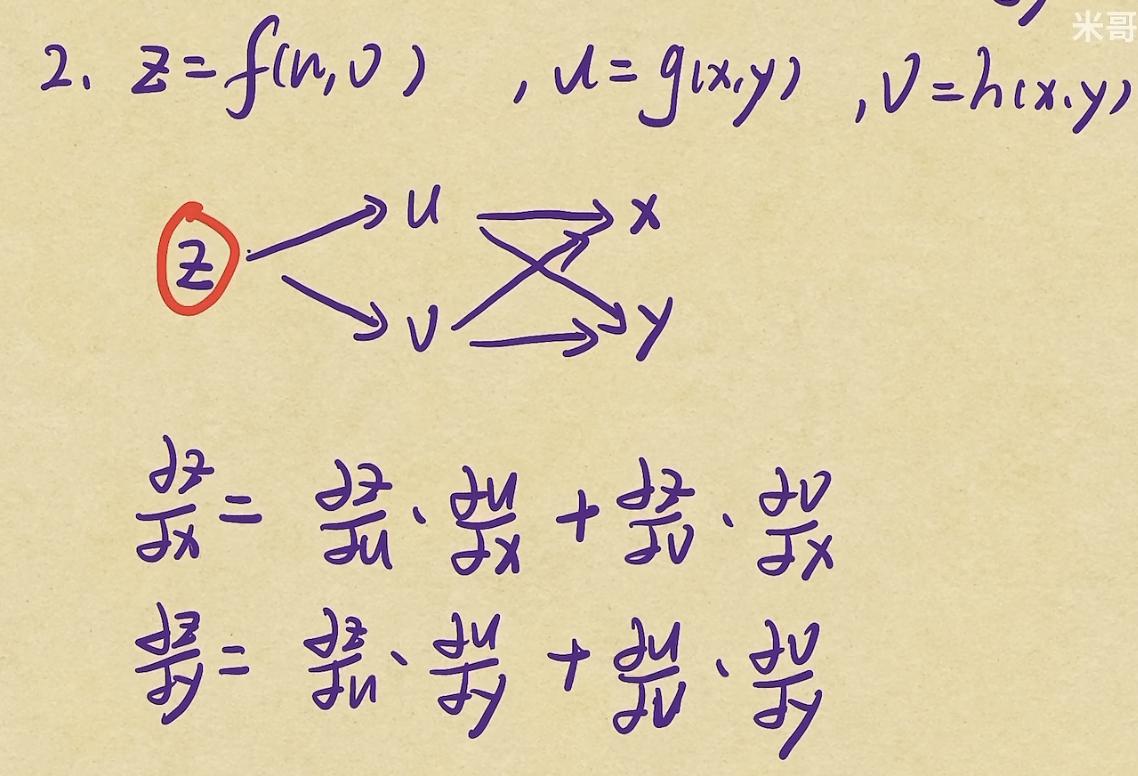 米哥
2. z=f(u,v) , u=g(x,y) , v=h(x,y)
z → u → x
v → y
∂z/∂x = ∂z/∂u · ∂u/∂x + ∂z/∂v · ∂v/∂x
∂z/∂y = ∂z/∂u · ∂u/∂y + ∂u/∂v · ∂v/∂y